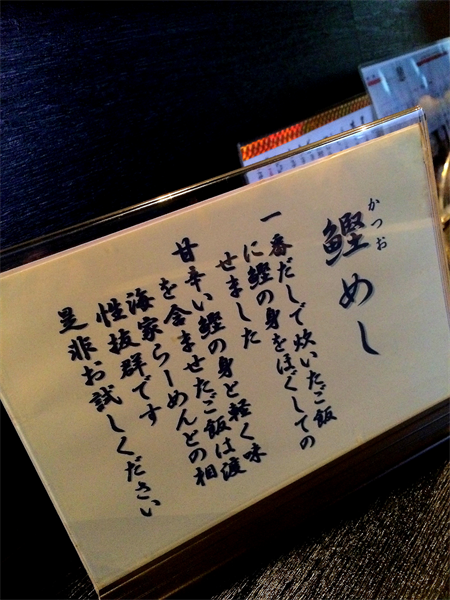 かつお
鰹めし
一番だしで炊いたご飯
に鰹の身をほぐしての
せました
甘辛い鰹の身と軽く味
を含ませたご飯は渡
海家らーめんとの相
性抜群です
是非お試しください